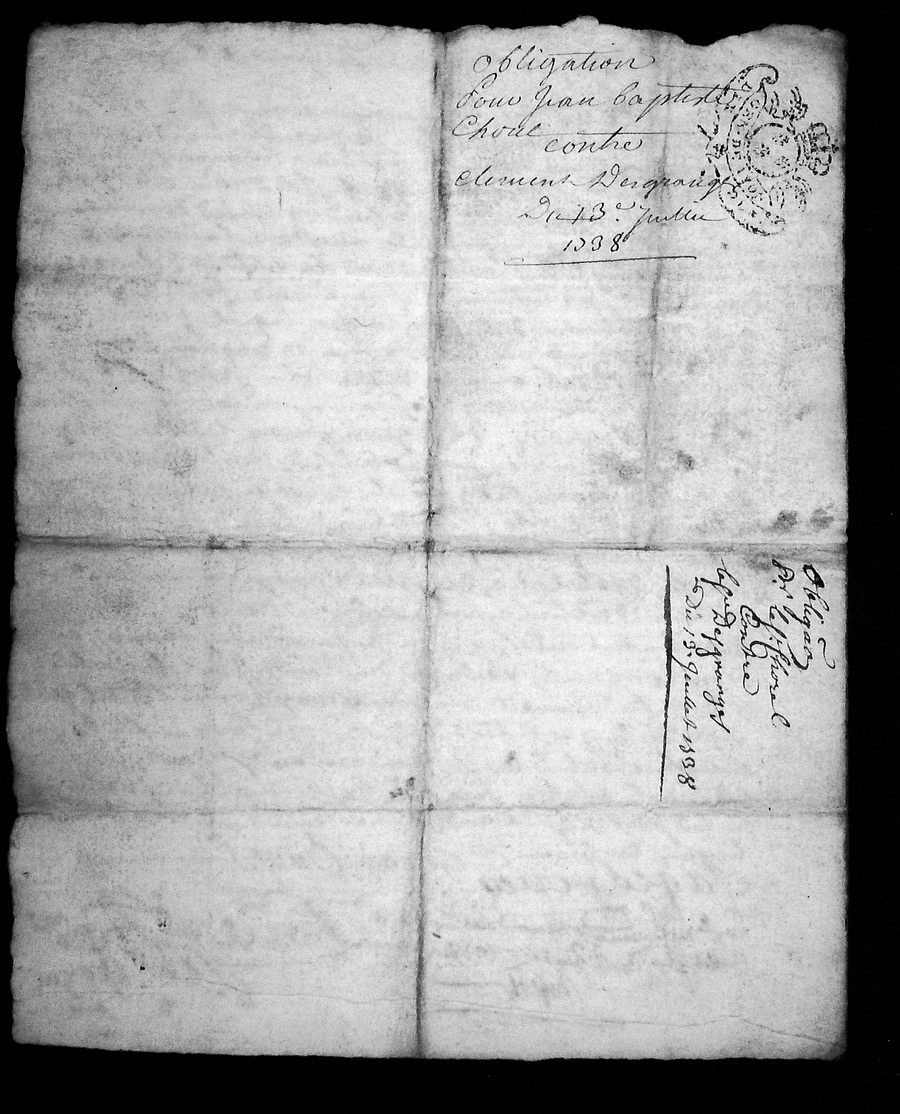 obligation
Pour Jean baptiste
Chorel
contre
clement Desgranges
Du 13e Juillet
1738
Obligaõn
Por. le Sr. Chorel
Contre
le Sr. Desgranges
Du 13e. Juillet 1738